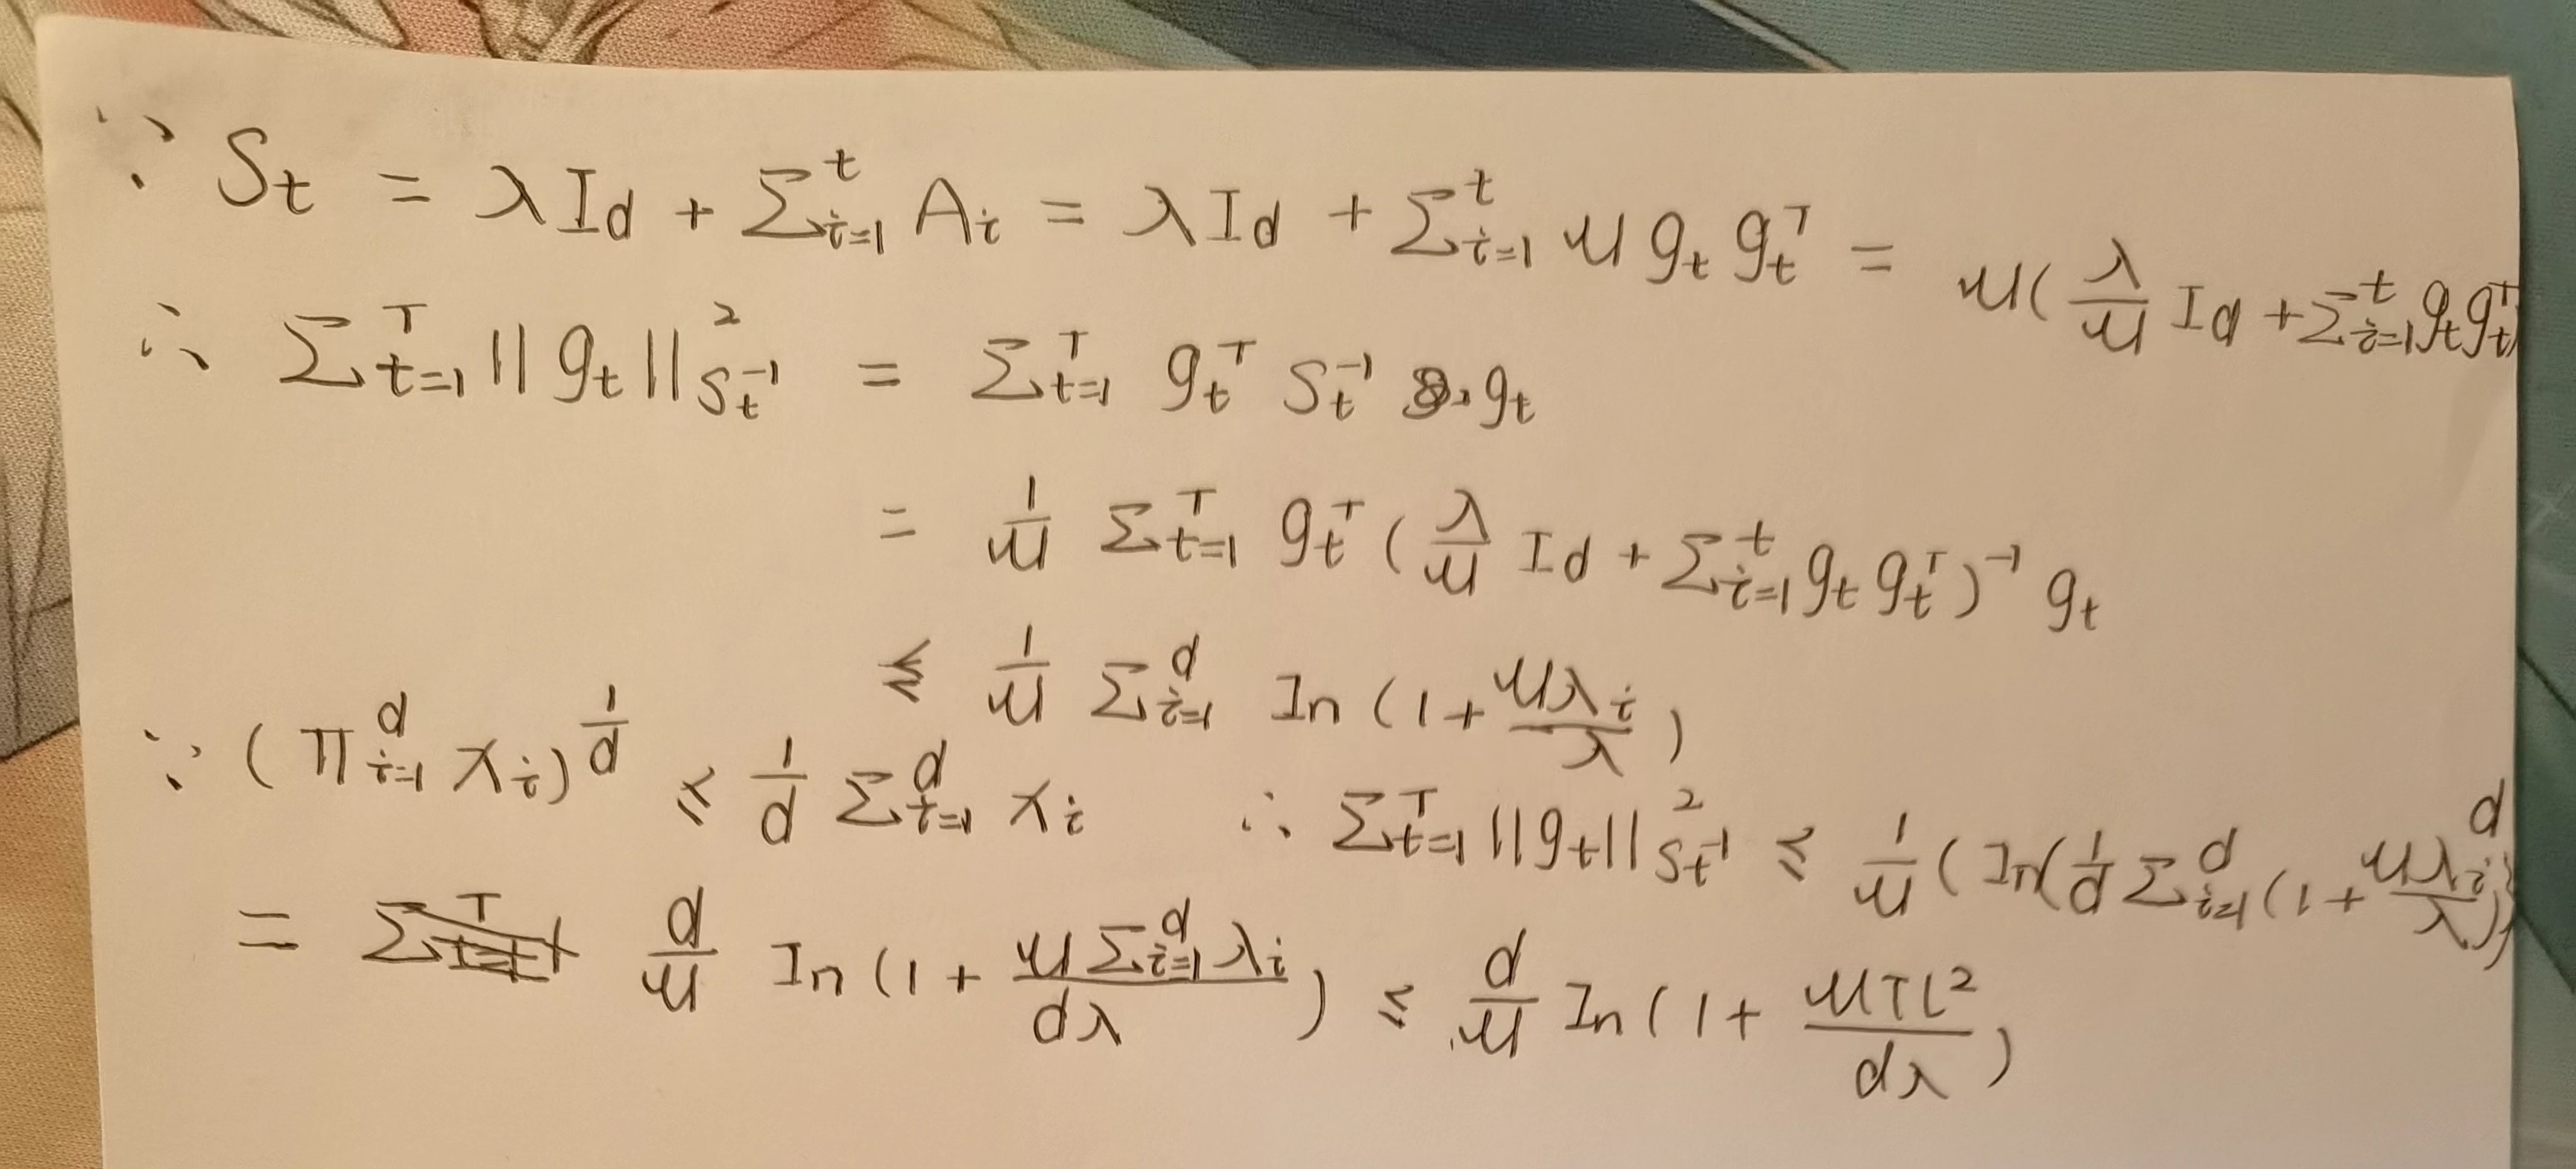 ∵ S_t = λI_d + Σ_{i=1}^{t} A_i = λI_d + Σ_{i=1}^{t} μ g_t g_t^T = μ(λ/μ I_d + Σ_{i=1}^{t} g_t g_t^T)
∴ Σ_{t=1}^{T} ||g_t||²_{S_t^{-1}} = Σ_{t=1}^{T} g_t^T S_t^{-1} · g_t
= 1/μ Σ_{t=1}^{T} g_t^T (λ/μ I_d + Σ_{i=1}^{t} g_t g_t^T)^{-1} g_t
≤ 1/μ Σ_{i=1}^{d} In(1 + μλ_i/λ)
∵ (Π_{i=1}^{d} x_i)^{1/d} ≤ 1/d Σ_{i=1}^{d} x_i ∴ Σ_{t=1}^{T} ||g_t||²_{S_t^{-1}} ≤ 1/μ (In(1/d Σ_{i=1}^{d} (1 + μλ_i/λ))^d
= d/μ In(1 + μΣ_{i=1}^{d} λ_i/dλ) ≤ d/μ In(1 + μTL²/dλ)